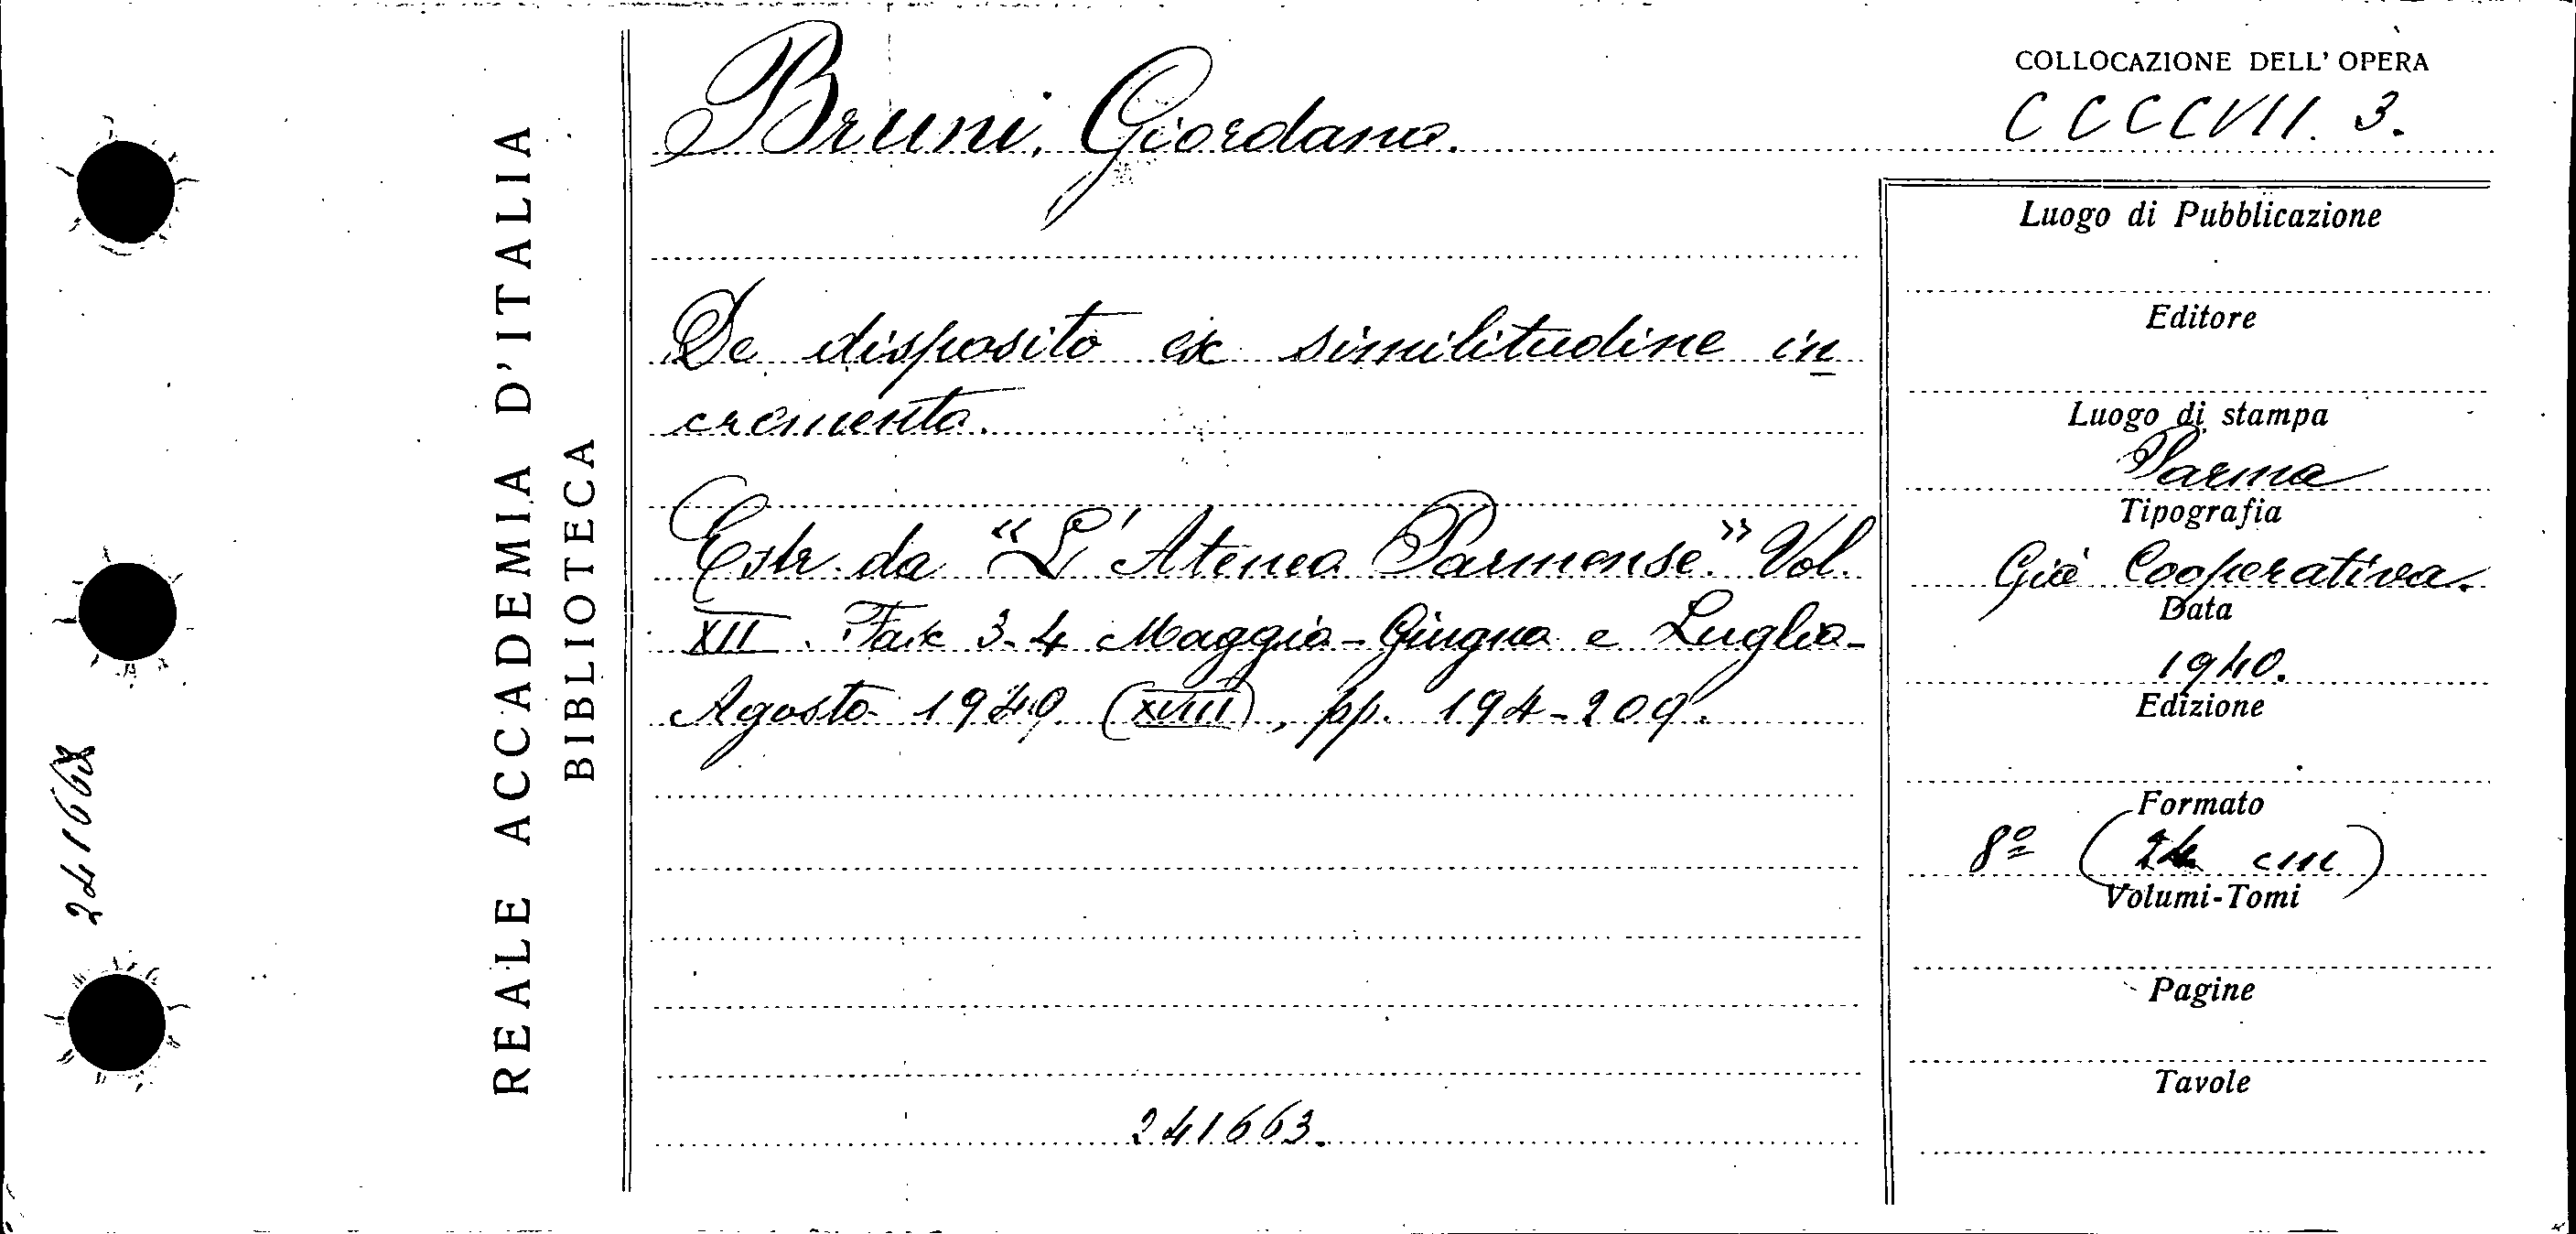 COLLOCAZIONE DELL' OPERA
Bruni, Giordano.
CCCCVII. 3.
REALE ACCADEMIA D'ITALIA
BIBLIOTECA
De disposito ex similitudine in
crementa.
Estr. da "L'Ateneo Parmense." Vol.
XII. Fasc 3-4 Maggio-Giugno e Luglio-
Agosto 1940 (XVIII), pp. 194-209.
241663.
Luogo di Pubblicazione
Editore
Luogo di stampa
Parma
Tipografia
Già Cooperativa.
Data
1940.
Edizione
Formato
8º (24 cm)
Volumi-Tomi
Pagine
Tavole